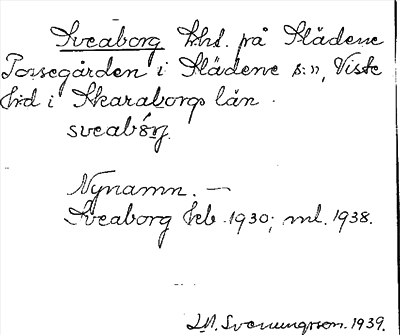 Sveaborg lht. på Slädene
Torsegården i Slädene s:n, Viste
hd i Skaraborgs län.
sveabórj.
Nynamn. —
Sveaborg Kb. 1930; ml. 1938.
Svenungsson. 1939.